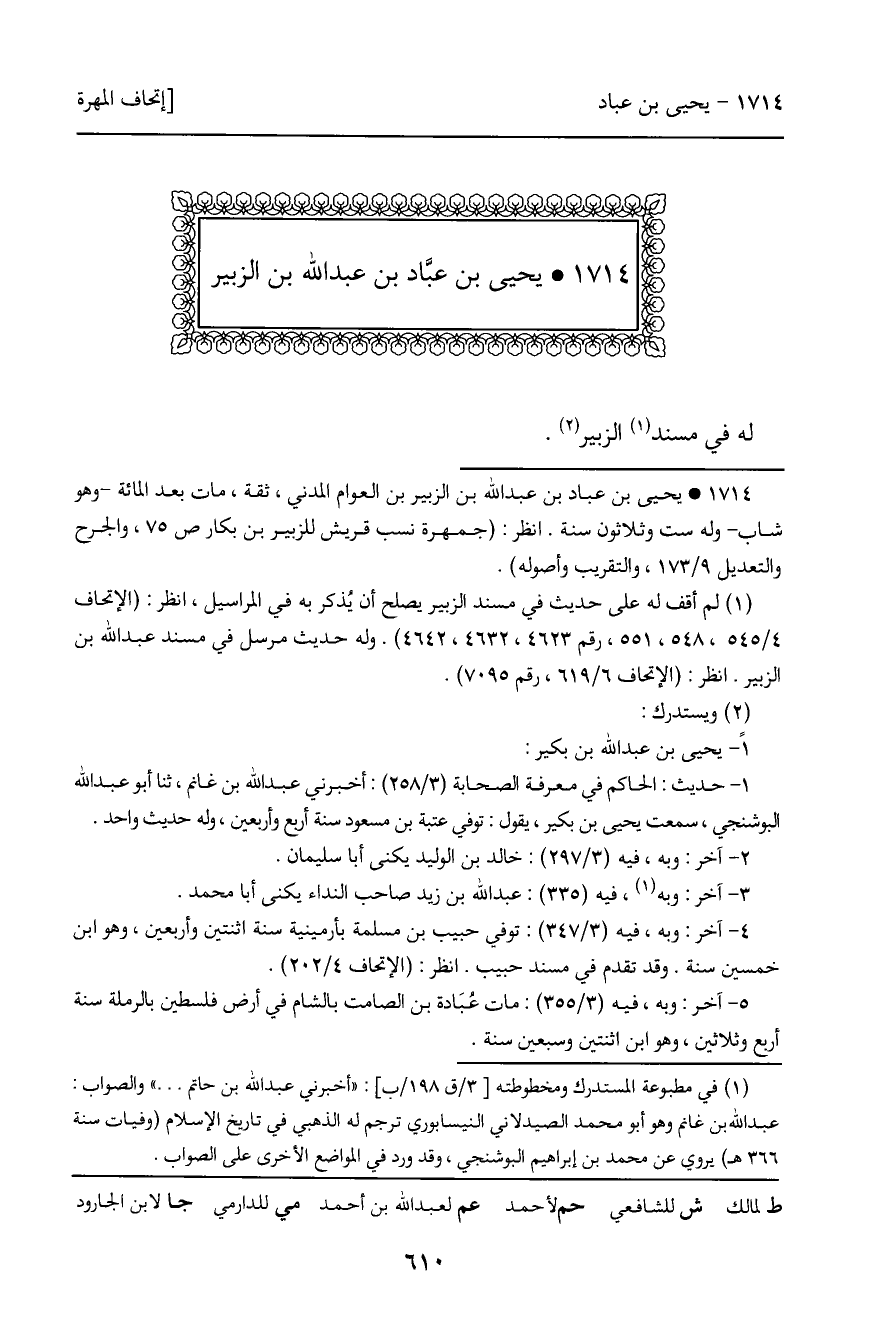 ١٧١٤ - يحيى بن عباد
[إتحاف المهرة
١٧١٤ • يحيى بن عبَّاد بن عبدالله بن الزبير
له في مسند(١) الزبير(٢) .
١٧١٤ • يحيى بن عباد بن عبدالله بن الزبير بن العوام المدني ، ثقة ، مات بعد المائة -وهو
شاب- وله ست وثلاثون سنة . انظر : (جمهرة نسب قريش للزبير بن بكار ص ٧٥ ، والجرح
والتعديل ١٧٣/٩ ، والتقريب وأصوله) .
(١) لم أقف له على حديث في مسند الزبير يصلح أن يُذكر به في المراسيل ، انظر : (الإتحاف
٥٤٥/٤ ، ٥٤٨ ، ٥٥١ ، رقم ٤٦٢٣ ، ٤٦٣٢ ، ٤٦٤٢) . وله حديث مرسل في مسند عبدالله بن
الزبير . انظر : (الإتحاف ٦١٩/٦ ، رقم ٧٠٩٥) .
(٢) ويستدرك :
أً- يحيى بن عبدالله بن بكير :
١- حديث : الحاكم في معرفة الصحابة (٢٥٨/٣) : أخبرني عبدالله بن غانم ، ثنا أبو عبدالله
البوشنجي ، سمعت يحيى بن بكير ، يقول : توفي عتبة بن مسعود سنة أربع وأربعين ، وله حديث واحد .
٢- آخر : وبه ، فيه (٢٩٧/٣) : خالد بن الوليد يكنى أبا سليمان .
٣- آخر : وبه(١) ، فيه (٣٣٥) : عبدالله بن زيد صاحب النداء يكنى أبا محمد .
٤- آخر : وبه ، فيه (٣٤٧/٣) : توفي حبيب بن مسلمة بأرمينية سنة اثنتين وأربعين ، وهو ابن
خمسين سنة . وقد تقدم في مسند حبيب . انظر : (الإتحاف ٢٠٢/٤) .
٥- آخر : وبه ، فيه (٣٥٥/٣) : مات عُبَادة بن الصامت بالشام في أرض فلسطين بالرملة سنة
أربع وثلاثين ، وهو ابن اثنتين وسبعين سنة .
(١) في مطبوعة المستدرك ومخطوطته [ ٣/ق ١٩٨/ب] : «أخبرني عبدالله بن حاتم . . .» والصواب :
عبدالله بن غانم وهو أبو محمد الصيدلاني النيسابوري ترجم له الذهبي في تاريخ الإسلام (وفيات سنة
٣٦٦ هـ) يروي عن محمد بن إبراهيم البوشنجي ، وقد ورد في المواضع الأخرى على الصواب .
ط لمالك ش للشافعي حم لأحمد عم لعبدالله بن أحمد مي للدارمي جا لابن الجارود
٦١٠